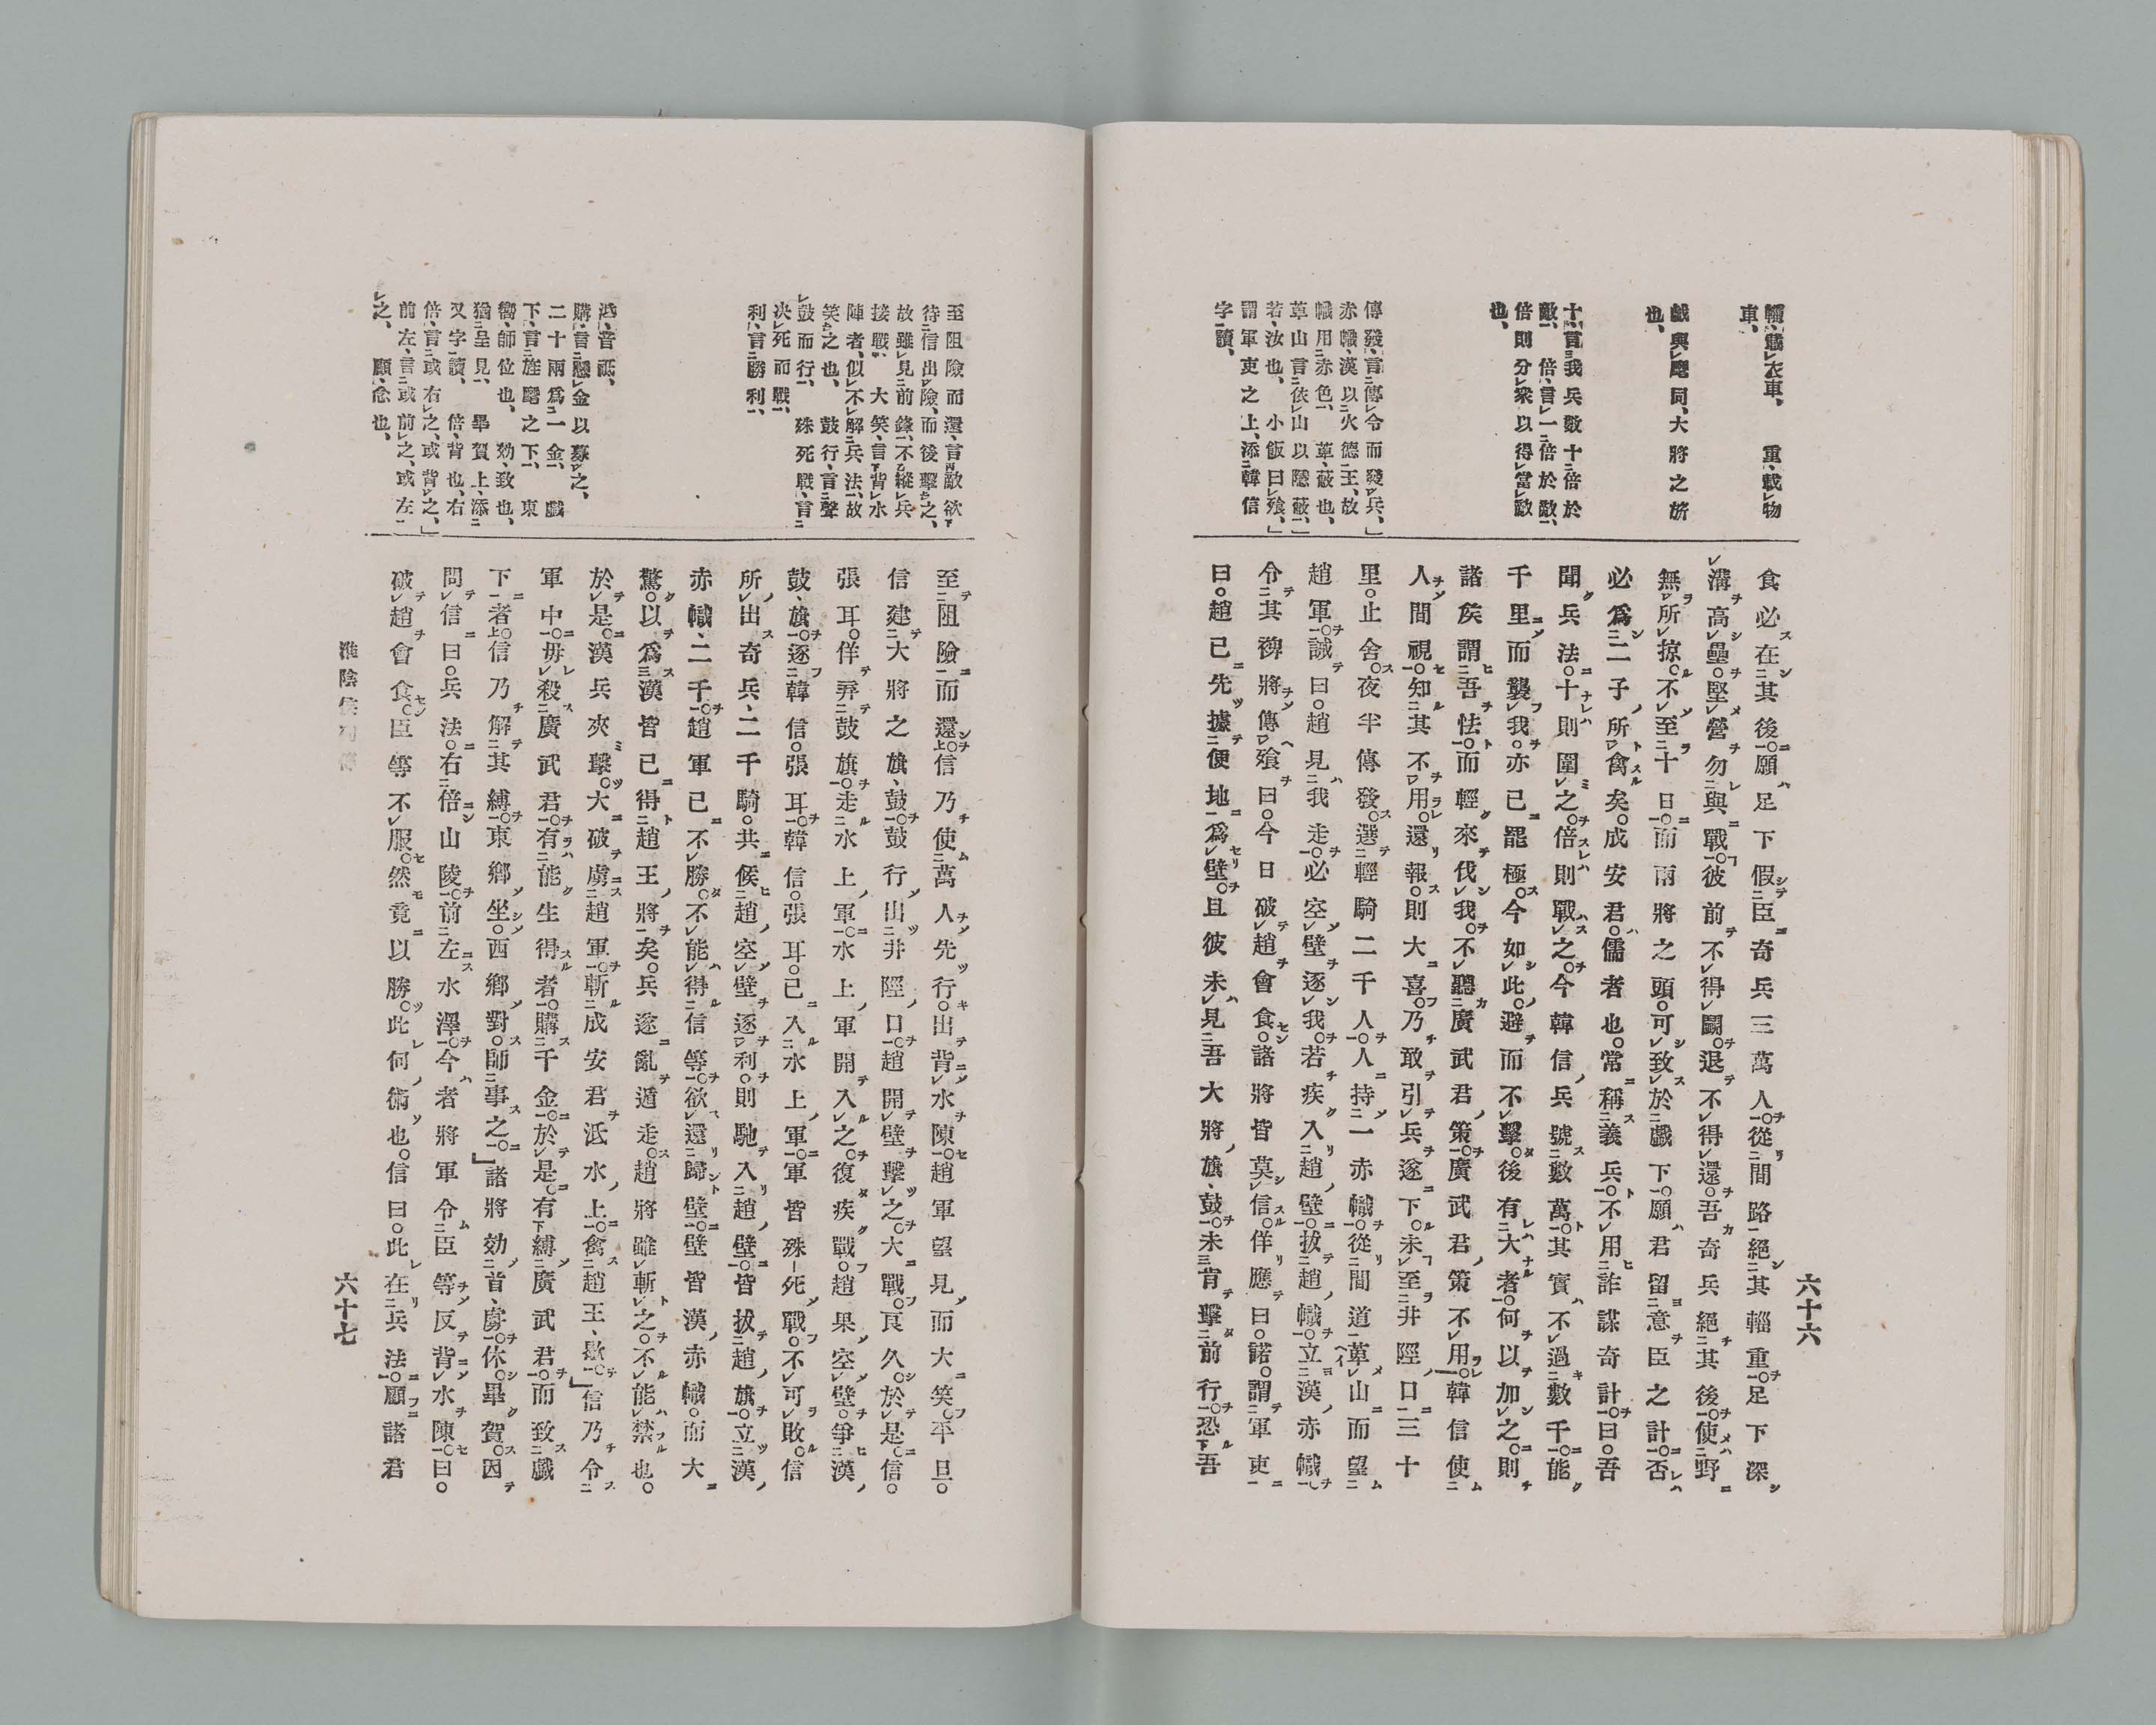 輜、載衣車、重、載物
車、
戲與麾同、大將之旂
也、
十、言我兵數十倍於
敵、倍、言一倍於敵、
倍則分衆以得當敵
也、
傳發、言傳令而發兵、」
赤幟、漢以火德王、故
幟用赤色、萆、蔽也、
草山言依山以隱蔽、」
若、汝也、小飯曰飱、」
謂軍吏之上、添韓信
字讀、
食必在其後。願足下假臣奇兵三萬人。從間路絕其輜重。足下深
溝高壘。堅營勿與戰。彼前不得鬭。退不得還。吾奇兵絕其後。使野
無所掠。不至十日。而兩將之頭。可致於戲下。願君留意臣之計。否
必爲二子所禽矣。成安君。儒者也。常稱義兵。不用詐謀奇計。曰。吾
聞兵法。十則圍之。倍則戰之。今韓信兵號數萬。其實不過數千。能
千里而襲我。亦已罷極。今如此。避而不擊。後有大者。何以加之。則
諸侯謂吾怯。而輕來伐我。不聽廣武君策。廣武君策不用。韓信使
人間視。知其不用。還報。則大喜。乃敢引兵遂下。未至井陘口三十
里。止舍。夜半傳發。選輕騎二千人。人持一赤幟。從間道萆山而望
趙軍。誡曰。趙見我走。必空壁逐我。若疾入趙壁。拔趙幟。立漢赤幟。
令其裨將傳飱曰。今日破趙會食。諸將皆莫信。佯應曰。諾。謂軍吏
曰。趙已先據便地爲壁。且彼未見吾大將旗、鼓。未肯擊前行。恐吾
六十六
至阻險而還、言敵欲
待信出險、而後擊之、
故雖見前鋒、不縱兵
接戰、大笑、言背水
陣者、似不解兵法、故
笑之也、鼓行、言聲
鼓而行、殊死戰、言
決死而戰、
利、言勝利、
泜、音祗、
購、言懸金以募之、
二十兩爲一金、戲
下、言旌麾之下、東
嚮、師位也、効、致也、
猶呈見、畢賀上、添
又字讀、倍、背也、右
倍、言或右之、或背之、」
前左、言或前之、或左
之、顧、念也、
至阻險而還。信乃使萬人先行。出背水陳。趙軍望見而大笑。平旦。
信建大將之旗、鼓。鼓行出井陘口。趙開壁擊之。大戰。良久。於是信。
張耳。佯弃鼓旗。走水上軍。水上軍開入之。復疾戰。趙果空壁。爭漢
鼓、旗。逐韓信。張耳。韓信。張耳。已入水上軍。軍皆殊死戰。不可敗。信
所出奇兵、二千騎。共候趙空壁逐利。則馳入趙壁。皆拔趙旗。立漢
赤幟、二千。趙軍已不勝。不能得信等。欲還歸壁。壁皆漢赤幟。而大
驚。以爲漢皆已得趙王將矣。兵遂亂遁走。趙將雖斬之。不能禁也。
於是。漢兵夾擊。大破虜趙軍。斬成安君泜水上。禽趙王、歇。」信乃令
軍中。毋殺廣武君。有能生得者。購千金。於是。有縛廣武君。而致戲
下者。信乃解其縛。東鄉坐。西鄉對。師事之。」諸將効首、虜。休。畢賀。因
問信曰。兵法。右倍山陵。前左水澤。今者將軍令臣等反背水陳。曰。
破趙會食。臣等不服。然竟以勝。此何術也。信曰。此在兵法。顧諸君
淮陰侯列傳
六十七